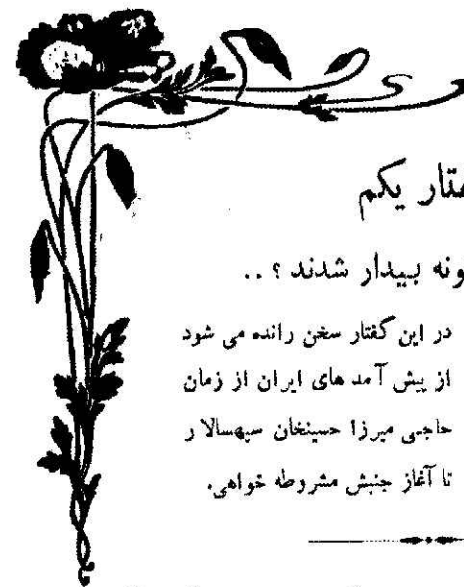 تار یکم
ونه بیدار شدند ؟ ..
در این گفتار سخن رانده می شود
از پیش آمد های ایران از زمان
حاجی میرزا حسینخان سپهسالار
تا آغاز جنبش مشروطه خواهی.